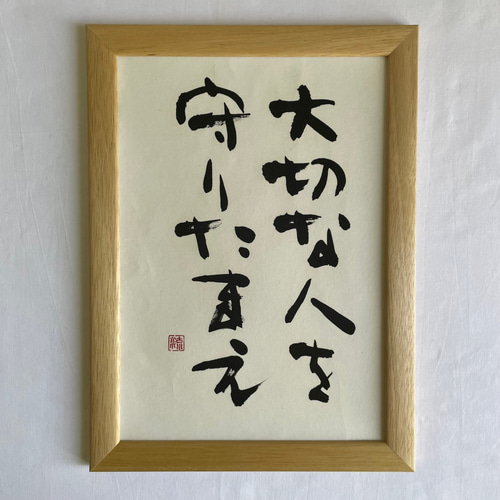 大切な人を
守りたまえ